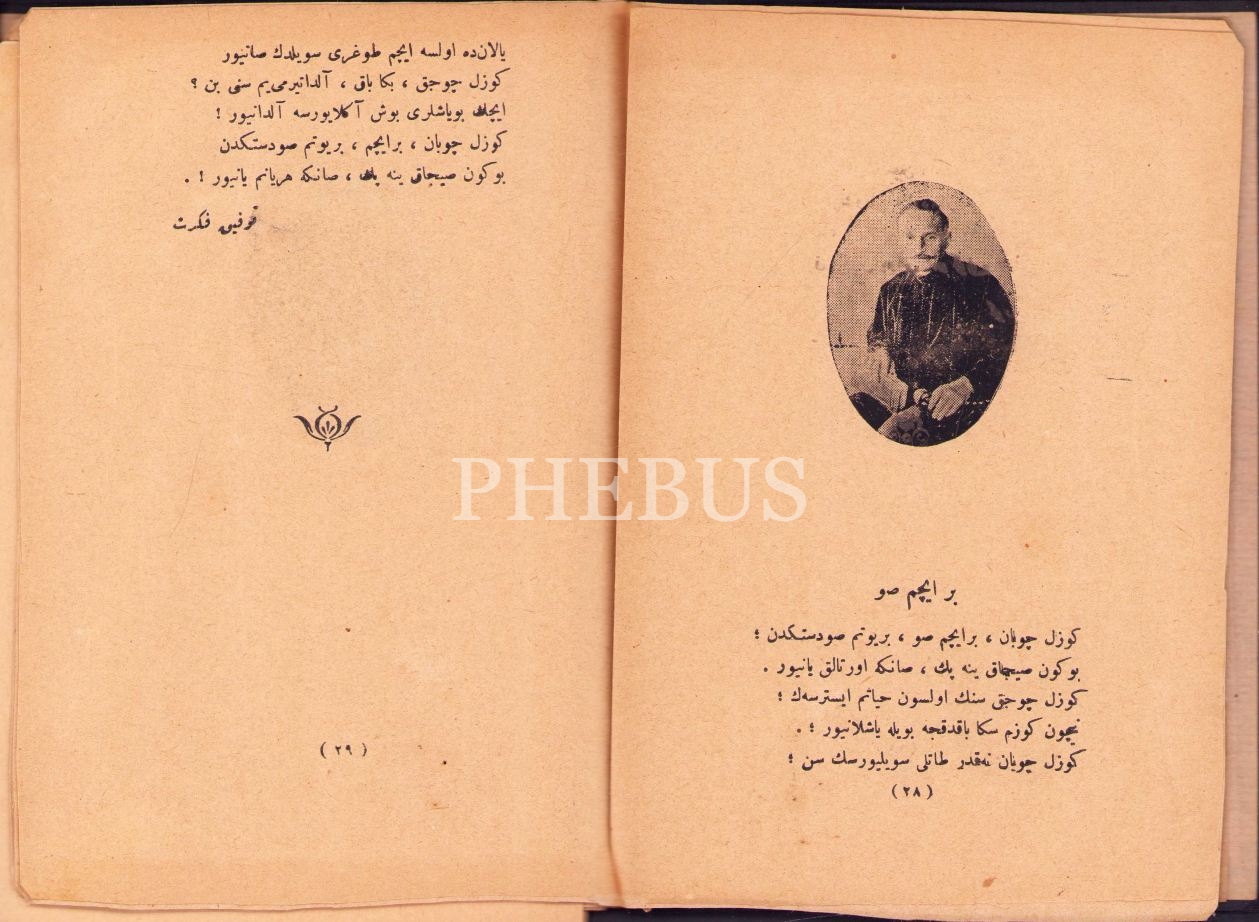 بر ایچم صو
كوزل چوبان ، برایچم صو ، بریوتم صودستكدن ؛
بوكون صیجاق ینه پك ، صانكه اورتالق یانیور .
كوزل چوجق سنك اولسون حیاتم ایسترسه‌ك ؛
نیچون كوزم سكا باقدقجه بویله یاشلانیور ؛ .
كوزل چوبان نه‌قدر طاتلی سویلیورسك سن ؛
( ٢٨ )
یالان‌ده اولسه ایچم طوغری سویلدك صانیور
كوزل چوجق ، بكا باق ، آلداتیرمی‌یم سنی بن ؟
ایچك بویاشلری بوش آكلایورسه آلدانیور !
كوزل چوبان ، برایچم ، بریوتم صودستكدن
بوكون صیجاق ینه پك ، صانكه هریانم یانیور ! .
توفیق فكرت
( ٢٩ )
PHEBUS